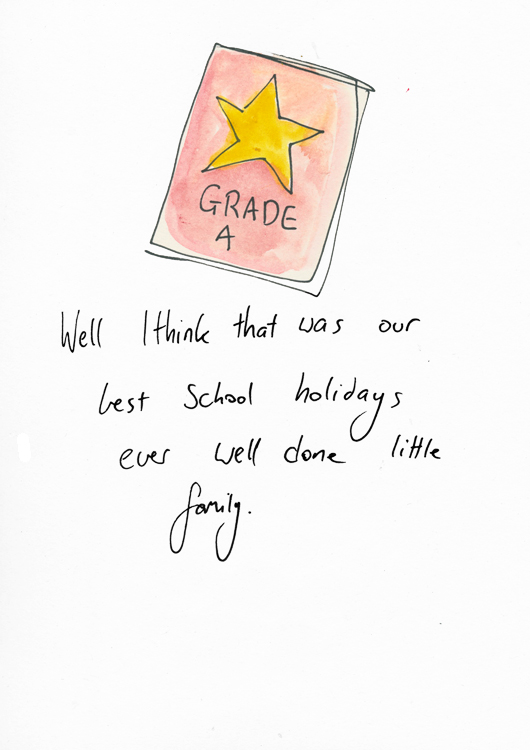 GRADE
A
Well I think that was our
best School holidays
ever well done little
family.